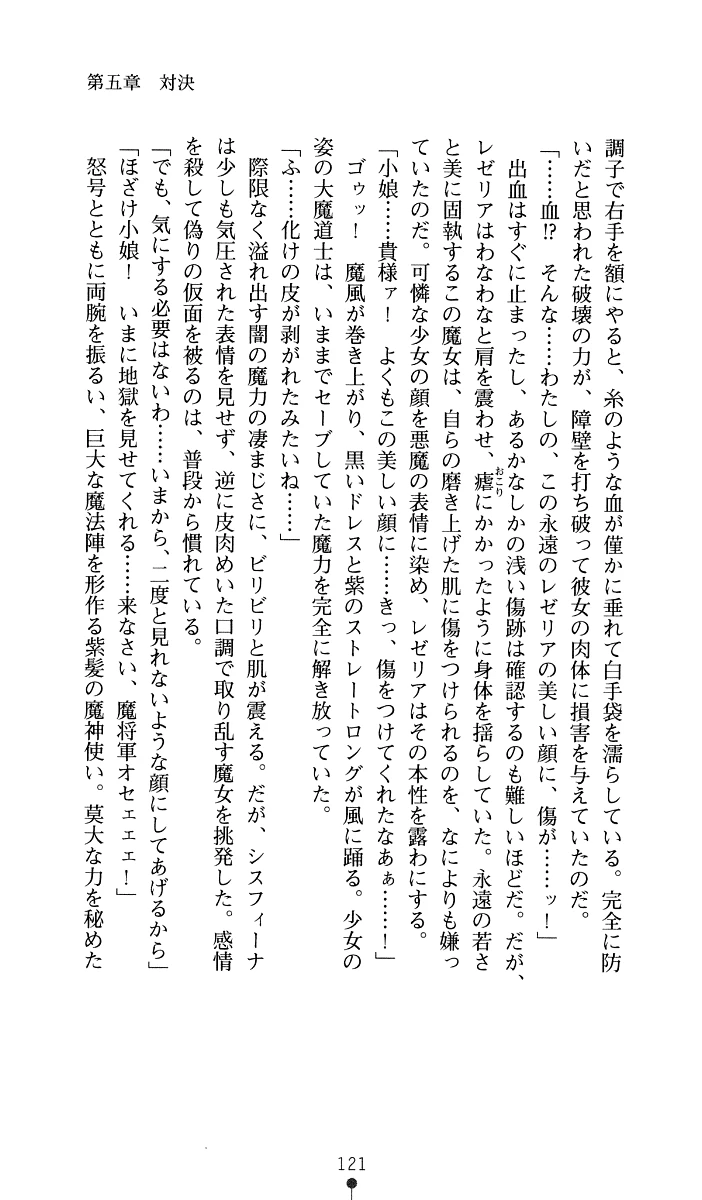 第五章　対決
調子で右手を額にやると、糸のような血が僅かに垂れて白手袋を濡らしている。完全に防
いだと思われた破壊の力が、障壁を打ち破って彼女の肉体に損害を与えていたのだ。
「……血!?　そんな……わたしの、この永遠のレゼリアの美しい顔に、傷が……ッ！」
　出血はすぐに止まったし、あるかなしかの浅い傷跡は確認するのも難しいほどだ。だが、
レゼリアはわなわなと肩を震わせ、瘧おこりにかかったように身体を揺らしていた。永遠の若さ
と美に固執するこの魔女は、自らの磨き上げた肌に傷をつけられるのを、なによりも嫌っ
ていたのだ。可憐な少女の顔を悪魔の表情に染め、レゼリアはその本性を露わにする。
「小娘……貴様ァ！　よくもこの美しい顔に……きっ、傷をつけてくれたなあぁ……！」
　ゴゥッ！　魔風が巻き上がり、黒いドレスと紫のストレートロングが風に踊る。少女の
姿の大魔道士は、いままでセーブしていた魔力を完全に解き放っていた。
「ふ……化けの皮が剥がれたみたいね……」
　際限なく溢れ出す闇の魔力の凄まじさに、ビリビリと肌が震える。だが、シスフィーナ
は少しも気圧された表情を見せず、逆に皮肉めいた口調で取り乱す魔女を挑発した。感情
を殺して偽りの仮面を被るのは、普段から慣れている。
「でも、気にする必要はないわ……いまから、二度と見れないような顔にしてあげるから」
「ほざけ小娘！　いまに地獄を見せてくれる……来なさい、魔将軍オセェェェ！」
　怒号とともに両腕を振るい、巨大な魔法陣を形作る紫髪の魔神使い。莫大な力を秘めた
121